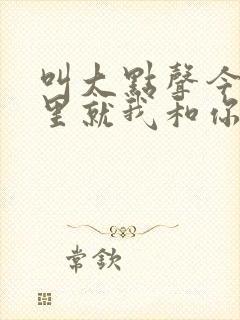 叫大點聲今
里就我和你
常欽